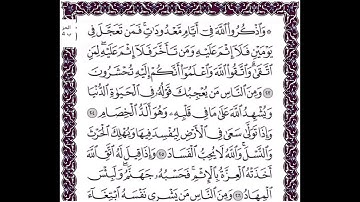 ۞ وَاذْكُرُوا اللَّهَ فِي أَيَّامٍ مَّعْدُودَاتٍ ۚ فَمَن تَعَجَّلَ فِي
يَوْمَيْنِ فَلَا إِثْمَ عَلَيْهِ وَمَن تَأَخَّرَ فَلَا إِثْمَ عَلَيْهِ ۚ لِمَنِ
اتَّقَىٰ ۗ وَاتَّقُوا اللَّهَ وَاعْلَمُوا أَنَّكُمْ إِلَيْهِ تُحْشَرُونَ
وَمِنَ النَّاسِ مَن يُعْجِبُكَ قَوْلُهُ فِي الْحَيَاةِ الدُّنْيَا
وَيُشْهِدُ اللَّهَ عَلَىٰ مَا فِي قَلْبِهِ وَهُوَ أَلَدُّ الْخِصَامِ
وَإِذَا تَوَلَّىٰ سَعَىٰ فِي الْأَرْضِ لِيُفْسِدَ فِيهَا وَيُهْلِكَ الْحَرْثَ
وَالنَّسْلَ ۗ وَاللَّهُ لَا يُحِبُّ الْفَسَادَ وَإِذَا قِيلَ لَهُ اتَّقِ اللَّهَ
أَخَذَتْهُ الْعِزَّةُ بِالْإِثْمِ ۚ فَحَسْبُهُ جَهَنَّمُ ۚ وَلَبِئْسَ
الْمِهَادُ وَمِنَ النَّاسِ مَن يَشْرِي نَفْسَهُ ابْتِغَاءَ